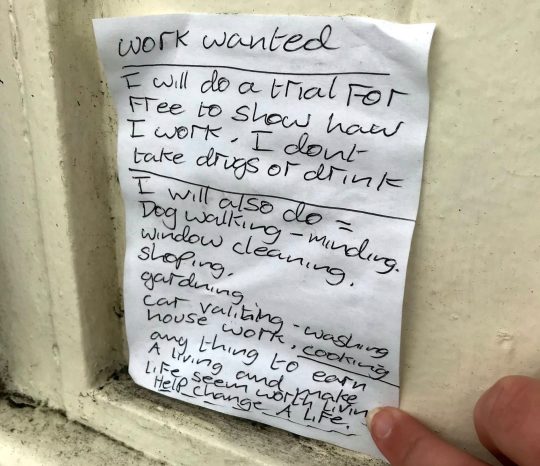 work wanted
I will do a trial for
free to show how
I work. I dont
take drugs or drink
I will also do =
Dog walking - minding.
window cleaning.
shoping,
gardning
car valiting - washing
house work, cooking
any thing to earn
A living and make
life seem worth living
Help change A Life.